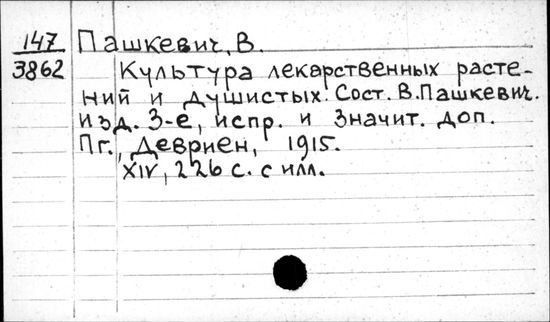 147 Пашкевич, В.
3862 Культура лекарственных расте-
ний и душистых. Сост. В. Пашкевич.
изд. 3-е, испр. и значит. доп.
Пг., Девриен, 1915.
XIV, 226 с. с илл.